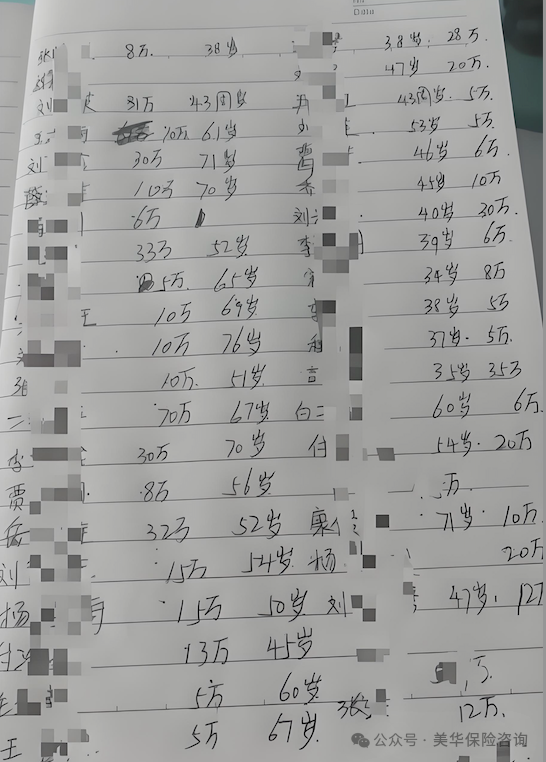 Date
张 8万 38岁 38岁. 28万
47岁 20万
刘 31万 43周岁 43周. 5万
10万 61岁 53岁 5万
刘 30万 71岁 46岁 6万.
110万 70岁 45岁 10万
6万 刘 40岁 30万.
33万 52岁 李 39岁 6万
5万. 65岁 34岁 8万
10万 69岁 李 38岁 5万
10万 76岁 37岁. 5万.
10万. 51岁 35岁 35万
70万 67岁 白 60岁 6万.
李 30万 70岁 付 54岁. 20万
贾 8万 56岁 万.
岳 32万 52岁 康 71岁. 10万
刘 15万 54岁 杨 20万
杨 15万 50岁 刘 47岁. 12
13万 45岁 万.
5万 60岁 张 12万.
王 5万 67岁
公众号·美华保险咨询